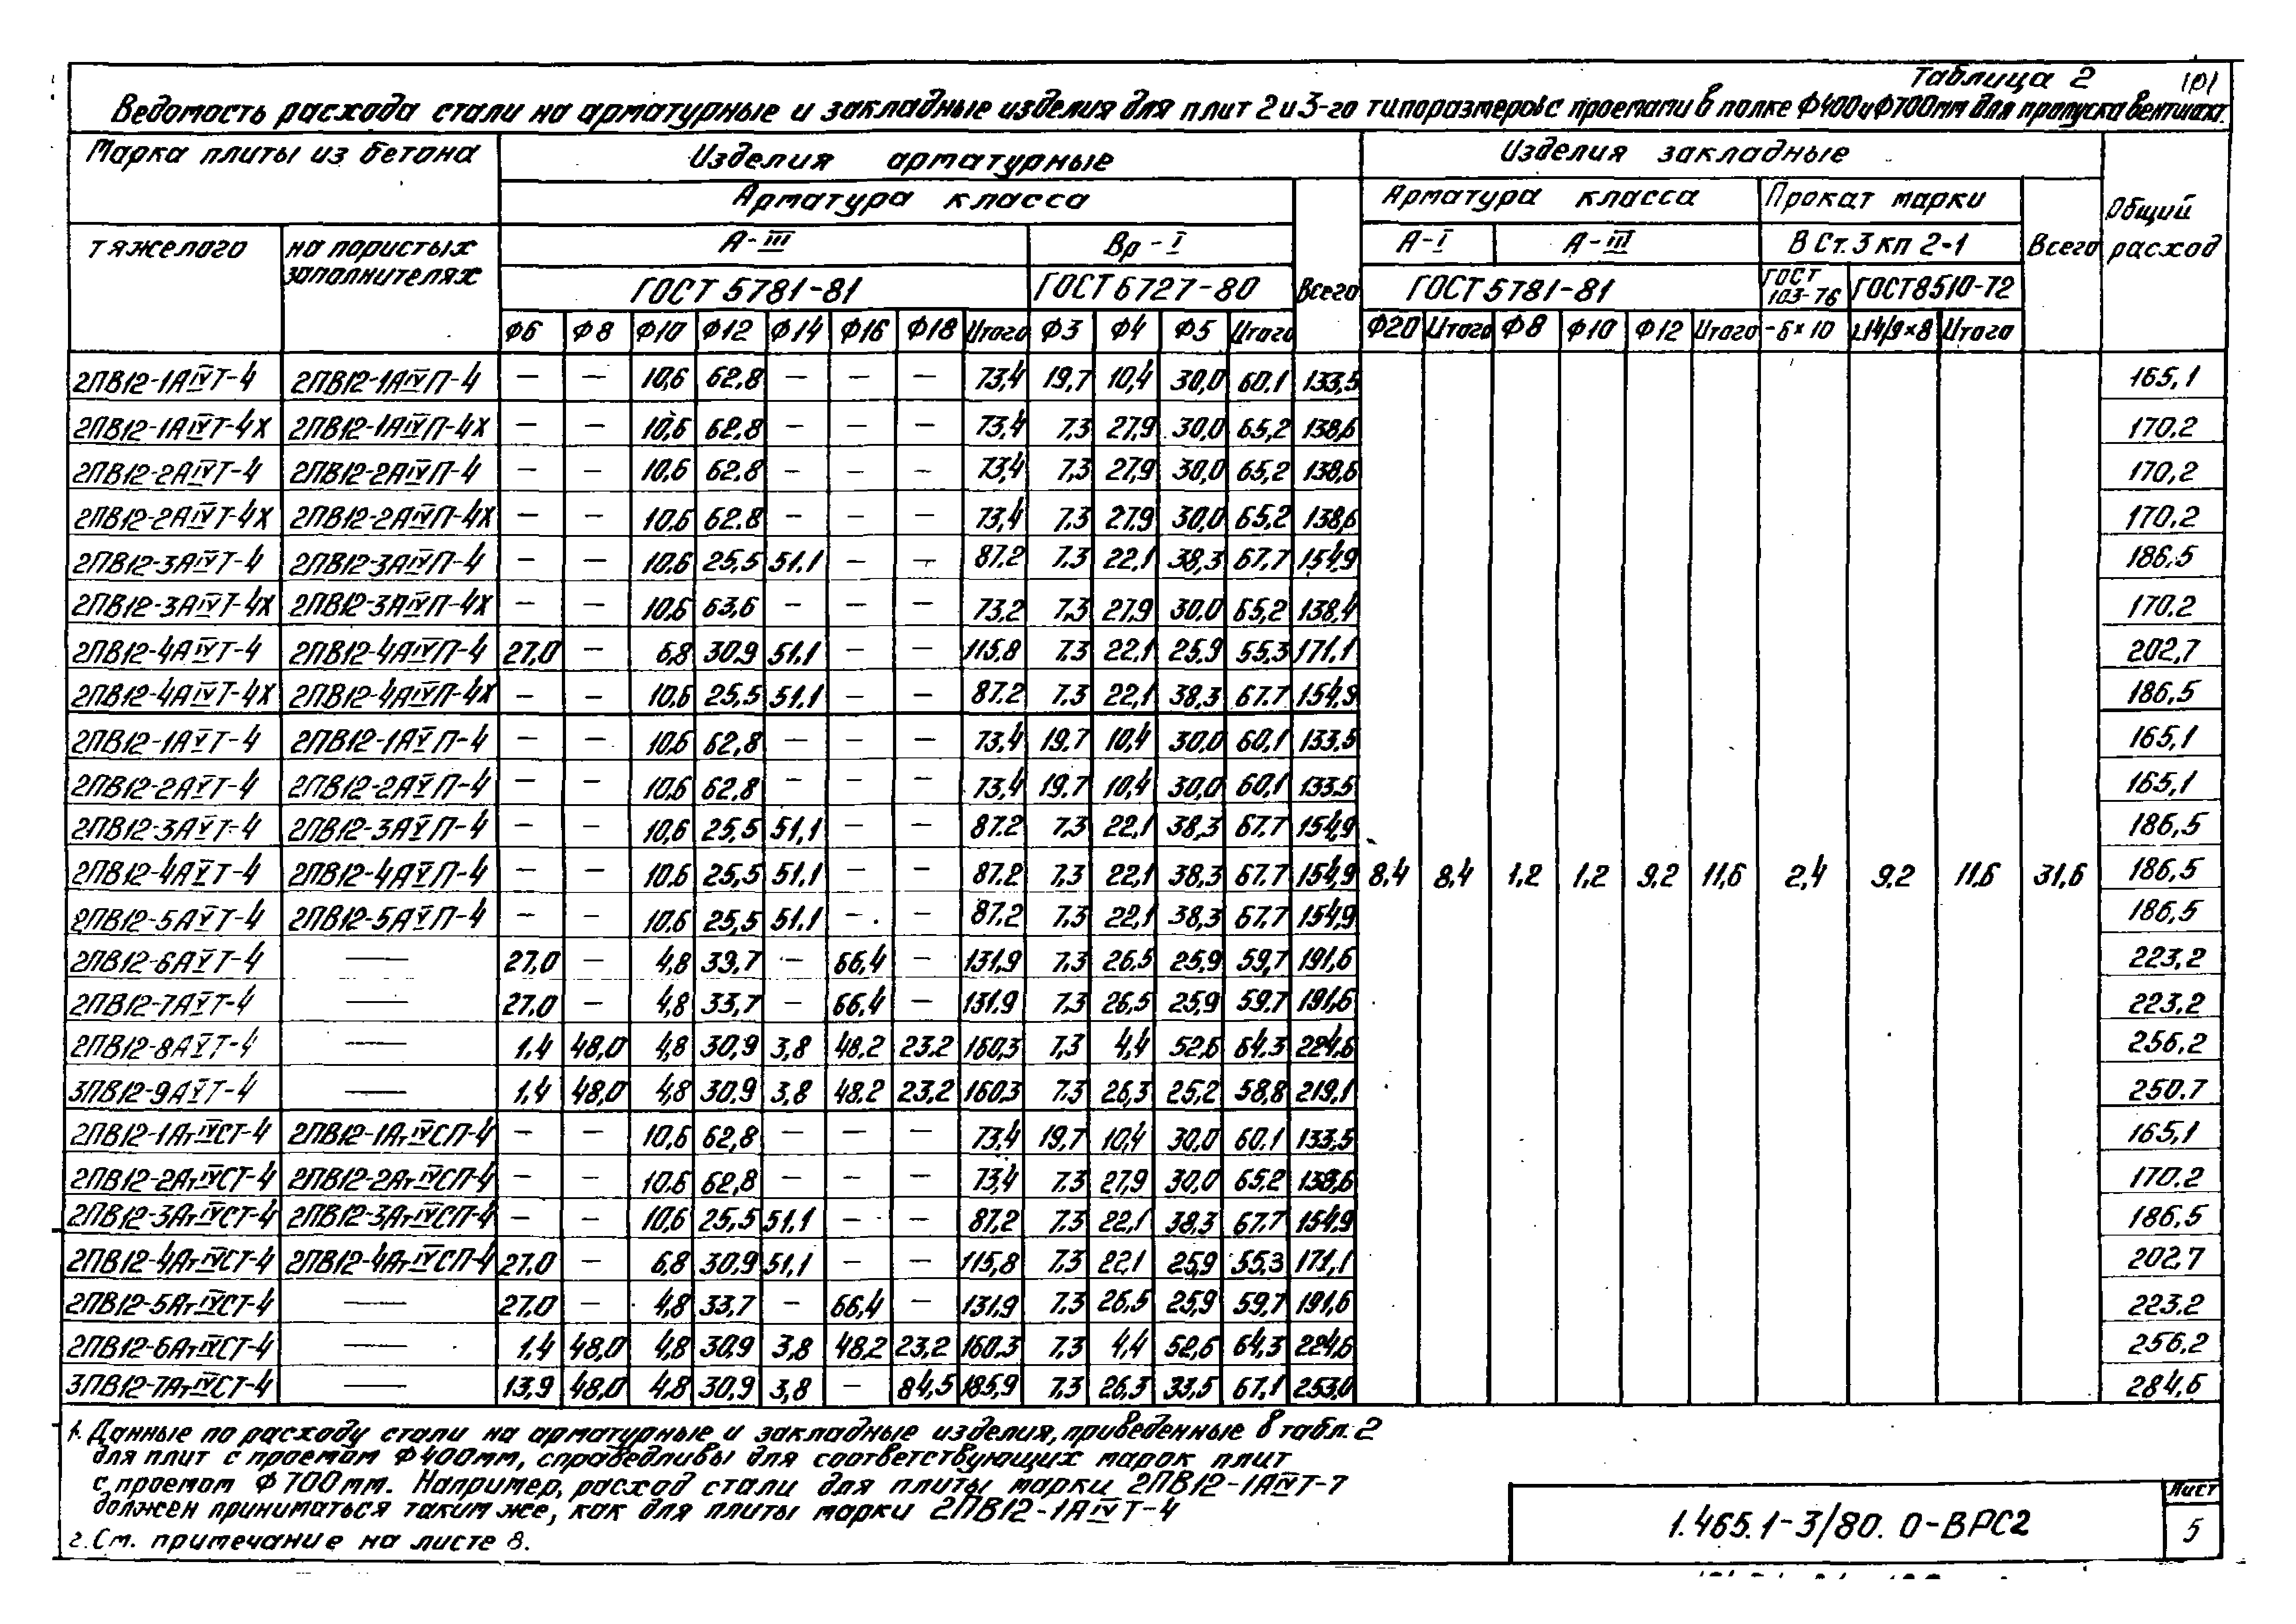 Таблица 2
Ведомость расхода стали на арматурные и закладные изделия для плит 2 и 3-го типоразмеров с проемами в полке Ф400 и Ф700мм для пропуска вентшахт.
Марка плиты из бетона Изделия арматурные Изделия закладные Общий расход
Арматура класса Всего Арматура класса Прокат марки Всего
тяжелого на пористых заполнителях А-III Вр-I А-I А-III В Ст.3 кп 2-1
ГОСТ 5781-81 ГОСТ 6727-80 ГОСТ 5781-81 ГОСТ 103-76 ГОСТ 8510-72
Ф6 Ф8 Ф10 Ф12 Ф14 Ф16 Ф18 Итого Ф3 Ф4 Ф5 Итого Ф20 Итого Ф8 Ф10 Ф12 Итого -6×10 Итого
2ПВ12-1АIVТ-4 2ПВ12-1АIVП-4 — — 10,6 62,8 — — — 73,4 19,7 10,4 30,0 60,1 133,5 165,1
2ПВ12-1АIVТ-4Х 2ПВ12-1АIVП-4Х — — 10,6 62,8 — — — 73,4 7,3 27,9 30,0 65,2 138,6 170,2
2ПВ12-2АIVТ-4 2ПВ12-2АIVП-4 — — 10,6 62,8 — — — 73,4 7,3 27,9 30,0 65,2 138,6 170,2
2ПВ12-2АIVТ-4Х 2ПВ12-2АIVП-4Х — — 10,6 62,8 — — — 73,4 7,3 27,9 30,0 65,2 138,6 170,2
2ПВ12-3АIVТ-4 2ПВ12-3АIVП-4 — — 10,6 25,5 51,1 — — 87,2 7,3 22,1 38,3 67,7 154,9 186,5
2ПВ12-3АIVТ-4Х 2ПВ12-3АIVП-4Х — — 10,6 63,6 — — — 73,2 7,3 27,9 30,0 65,2 138,4 170,2
2ПВ12-4АIVТ-4 2ПВ12-4АIVП-4 27,0 — 6,8 30,9 51,1 — — 115,8 7,3 22,1 25,9 55,3 171,1 202,7
2ПВ12-4АIVТ-4Х 2ПВ12-4АIVП-4Х — — 10,6 25,5 51,1 — — 87,2 7,3 22,1 38,3 67,7 154,9 186,5
2ПВ12-1АVТ-4 2ПВ12-1АVП-4 — — 10,6 62,8 — — — 73,4 19,7 10,4 30,0 60,1 133,5 165,1
2ПВ12-2АVТ-4 2ПВ12-2АVП-4 — — 10,6 62,8 — — — 73,4 19,7 10,4 30,0 60,1 133,5 165,1
2ПВ12-3АVТ-4 2ПВ12-3АVП-4 — — 10,6 25,5 51,1 — — 87,2 7,3 22,1 38,3 67,7 154,9 186,5
2ПВ12-4АVТ-4 2ПВ12-4АVП-4 — — 10,6 25,5 51,1 — — 87,2 7,3 22,1 38,3 67,7 154,9 8,4 8,4 1,2 1,2 9,2 11,6 2,4 9,2 11,6 31,6 186,5
2ПВ12-5АVТ-4 2ПВ12-5АVП-4 — — 10,6 25,5 51,1 — — 87,2 7,3 22,1 38,3 67,7 154,9 186,5
2ПВ12-6АVТ-4 — 27,0 — 4,8 33,7 — 66,4 — 131,9 7,3 26,5 25,9 59,7 191,6 223,2
2ПВ12-7АVТ-4 — 27,0 — 4,8 33,7 — 66,4 — 131,9 7,3 26,5 25,9 59,7 191,6 223,2
2ПВ12-8АVТ-4 — 1,4 48,0 4,8 30,9 3,8 48,2 23,2 160,3 7,3 4,4 52,6 64,3 224,6 256,2
3ПВ12-9АVТ-4 — 1,4 48,0 4,8 30,9 3,8 48,2 23,2 160,3 7,3 26,3 25,2 58,8 219,1 250,7
2ПВ12-1АтIVСТ-4 2ПВ12-1АтIVСП-4 — — 10,6 62,8 — — — 73,4 19,7 10,4 30,0 60,1 133,5 165,1
2ПВ12-2АтIVСТ-4 2ПВ12-2АтIVСП-4 — — 10,6 62,8 — — — 73,4 7,3 27,9 30,0 65,2 138,6 170,2
2ПВ12-3АтIVСТ-4 2ПВ12-3АтIVСП-4 — — 10,6 25,5 51,1 — — 87,2 7,3 22,1 38,3 67,7 154,9 186,5
2ПВ12-4АтIVСТ-4 2ПВ12-4АтIVСП-4 27,0 — 6,8 30,9 51,1 — — 115,8 7,3 22,1 25,9 55,3 171,1 202,7
2ПВ12-5АтIVСТ-4 — 27,0 — 4,8 33,7 — 66,4 — 131,9 7,3 26,5 25,9 59,7 191,6 223,2
2ПВ12-6АтIVСТ-4 — 1,4 48,0 4,8 30,9 3,8 48,2 23,2 160,3 7,3 4,4 52,6 64,3 224,6 256,2
3ПВ12-7АтIVСТ-4 — 13,9 48,0 4,8 30,9 3,8 — 84,5 185,9 7,3 26,3 33,5 67,1 253,0 284,6
1. Данные по расходу стали на арматурные и закладные изделия, приведенные в табл. 2
для плит с проемом Ф400мм, справедливы для соответствующих марок плит
с проемом Ф700мм. Например, расход стали для плиты марки 2ПВ12-1АIVТ-7
должен приниматься таким же, как для плиты марки 2ПВ12-1АIVТ-4
2. См. примечание на листе 8.
1.465.1-3/80. 0-ВРС2
Лист
5